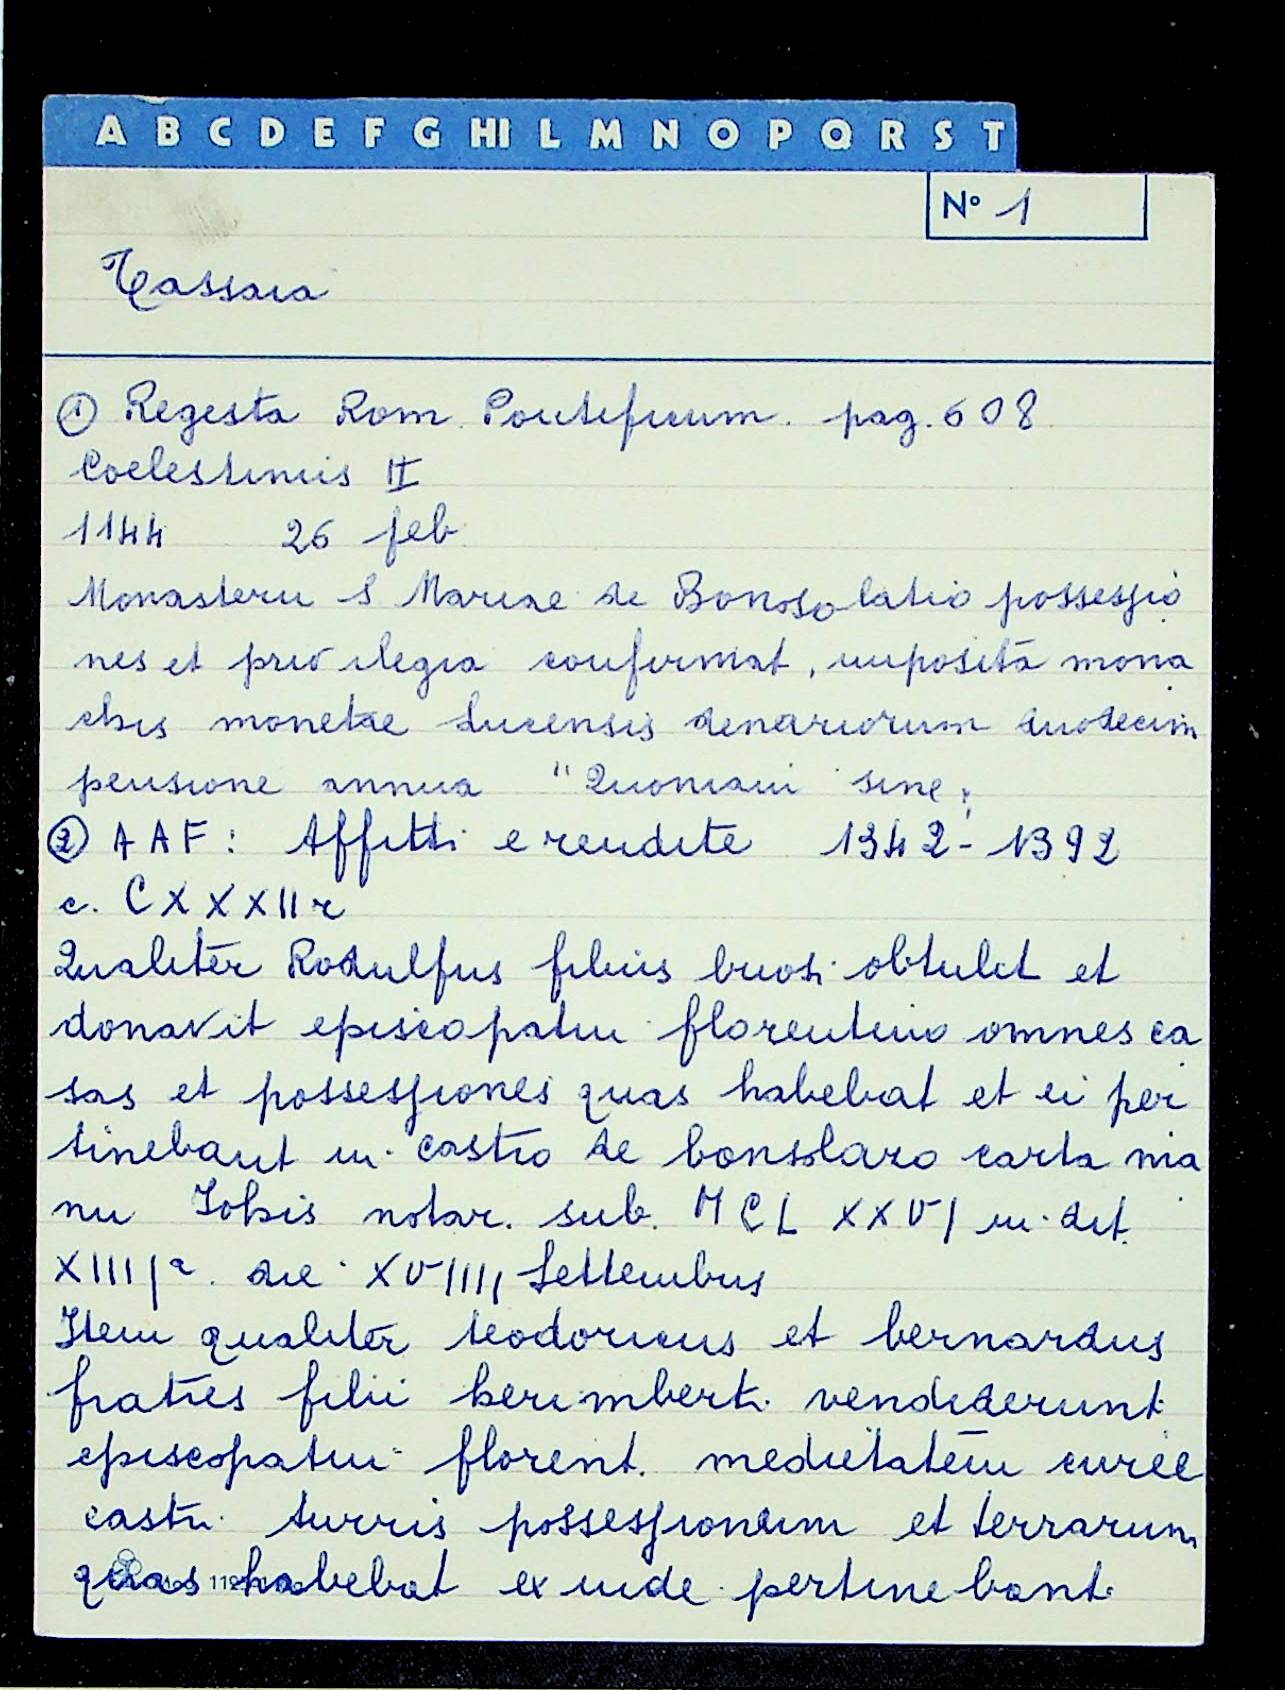 A B C D E F G HI L M N O P Q R S T
N° 1
Tassaia
① Regesta Rom. Pontificum. pag. 608
Coelestinus II
1144 26 feb
Monasterii S Mariae de Bonosolatio possessio
nes et privilegia confirmat, imposita mona
chis monetae Lucensis denariorum duodecim
pensione annua "Quoniam sine"
② AAF: Affitti e rendite 1342-1392
c. CXXXII r
Qualiter Rodulfus filius buosi obtulit et
donavit episcopatui florentino omnes ca
sas et possessiones quas habebat et ei per
tinebant in castro de bonsolazo carta ma
nu Johis notar. sub. MCLXXVI in dit.
XIIIIa. die XVIIII Settembris
Item qualiter teodoricus et bernardus
fratres filii berimberti vendiderunt
episcopatui florent. medietatem curee
castri turris possessionum et terrarum
quas habebat exinde pertinebant